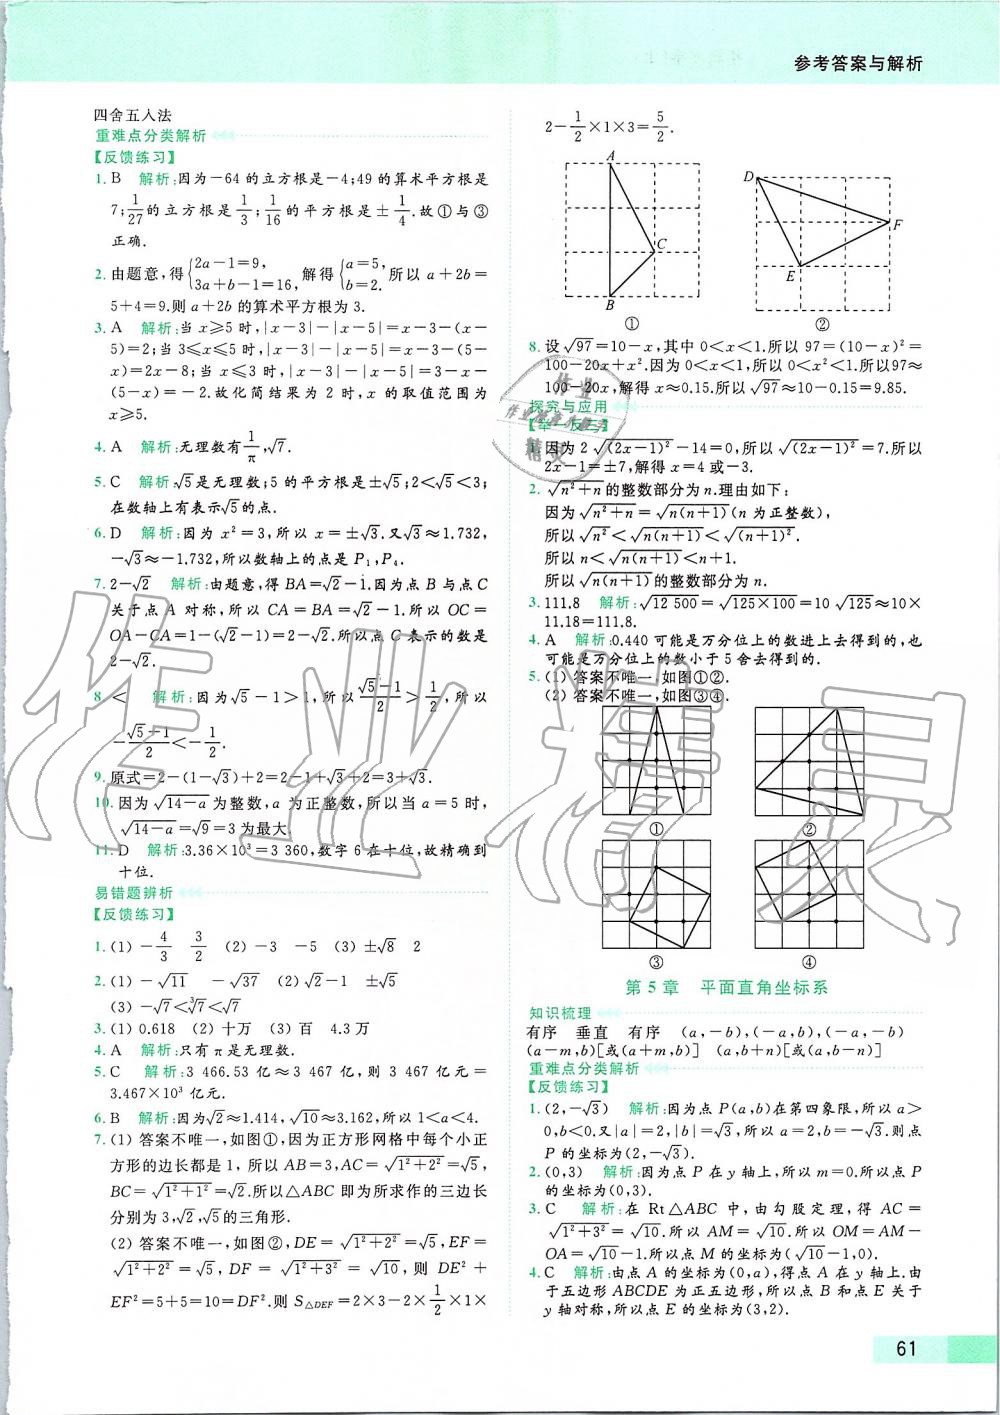 参考答案与解析
四舍五入法
重难点分类解析
【反馈练习】
1. B 解析:因为−64的立方根是−4;49的算术平方根是
7;1/27的立方根是1/3;1/16的平方根是±1/4.故①与③
正确.
2. 由题意,得{2a−1=9, 3a+b−1=16, 解得{a=5, b=2. 所以a+2b=
5+4=9.则a+2b的算术平方根为3.
3. A 解析:当x≥5时,|x−3|−|x−5|=x−3−(x−
5)=2;当3≤x≤5时,|x−3|−|x−5|=x−3−(5−
x)=2x−8;当x≤3时,|x−3|−|x−5|=3−x−
(5−x)=−2.故化简结果为2时,x的取值范围为
x≥5.
4. A 解析:无理数有1/π,√7.
5. C 解析:√5是无理数;5的平方根是±√5;2<√5<3;
在数轴上有表示√5的点.
6. D 解析:因为x²=3,所以x=±√3.又√3≈1.732,
−√3≈−1.732,所以数轴上的点是P₁,P₄.
7. 2−√2 解析:由题意,得BA=√2−1.因为点B与点C
关于点A对称,所以CA=BA=√2−1.所以OC=
OA−CA=1−(√2−1)=2−√2.所以点C表示的数是
2−√2.
8. < 解析:因为√5−1>1,所以(√5−1)/2>1/2,所以
−(√5−1)/2<−1/2.
9. 原式=2−(1−√3)+2=2−1+√3+2=3+√3.
10. 因为√(14−a)为整数,a为正整数,所以当a=5时,
√(14−a)=√9=3为最大.
11. D 解析:3.36×10³=3 360,数字6在十位,故精确到
十位.
易错题辨析
【反馈练习】
1. (1) −4/3 3/2 (2) −3 −5 (3) ±√8 2
2. (1) −√11 −√37 (2) √2−1 ±√5
(3) −√7<∛7<√7
3. (1) 0.618 (2) 十万 (3) 百 4.3万
4. A 解析:只有π是无理数.
5. C 解析:3 466.53亿≈3 467亿,则3 467亿元=
3.467×10³亿元.
6. B 解析:因为√2≈1.414,√10≈3.162,所以1<a<4.
7. (1) 答案不唯一,如图①,因为正方形网格中每个小正
方形的边长都是1,所以AB=3,AC=√(1²+2²)=√5,
BC=√(1²+1²)=√2.所以△ABC即为所求作的三边长
分别为3,√2,√5的三角形.
(2) 答案不唯一,如图②,DE=√(1²+2²)=√5,EF=
√(1²+2²)=√5,DF=√(1²+3²)=√10,则DE²+
EF²=5+5=10=DF².则S△DEF=2×3−2×1/2×1×
2−1/2×1×3=5/2.
A
C
B
①
D
F
E
②
8. 设√97=10−x,其中0<x<1.所以97=(10−x)²=
100−20x+x².因为0<x<1,所以0<x²<1.所以97≈
100−20x,解得x≈0.15.所以√97≈10−0.15=9.85.
探究与应用
【举一反三】
1. 因为2√(2x−1)²−14=0,所以√(2x−1)²=7.所以
2x−1=±7,解得x=4或−3.
2. √(n²+n)的整数部分为n.理由如下:
因为√(n²+n)=√(n(n+1))(n为正整数),
所以√n²<√(n(n+1))<√(n+1)².
所以n<√(n(n+1))<n+1.
所以√(n(n+1))的整数部分为n.
3. 111.8 解析:√12 500=√(125×100)=10√125≈10×
11.18=111.8.
4. A 解析:0.440可能是万分位上的数进上去得到的,也
可能是万分位上的数小于5舍去得到的.
5. (1) 答案不唯一,如图①②.
(2) 答案不唯一,如图③④.
①
②
③
④
第5章 平面直角坐标系
知识梳理
有序 垂直 有序 (a,−b),(−a,b),(−a,−b)
(a−m,b)[或(a+m,b)] (a,b+n)[或(a,b−n)]
重难点分类解析
【反馈练习】
1. (2,−√3) 解析:因为点P(a,b)在第四象限,所以a>
0,b<0.又|a|=2,|b|=√3,所以a=2,b=−√3.则点
P的坐标为(2,−√3).
2. (0,3) 解析:因为点P在y轴上,所以m=0.所以点P
的坐标为(0,3).
3. C 解析:在Rt△ABC中,由勾股定理,得AC=
√(1²+3²)=√10.所以AM=√10.所以OM=AM−
OA=√10−1.所以点M的坐标为(√10−1,0).
4. C 解析:由点A的坐标为(0,a),得点A在y轴上.由
于五边形ABCDE为正五边形,所以点B和点E关于
y轴对称,所以点E的坐标为(3,2).
61
作业精灵